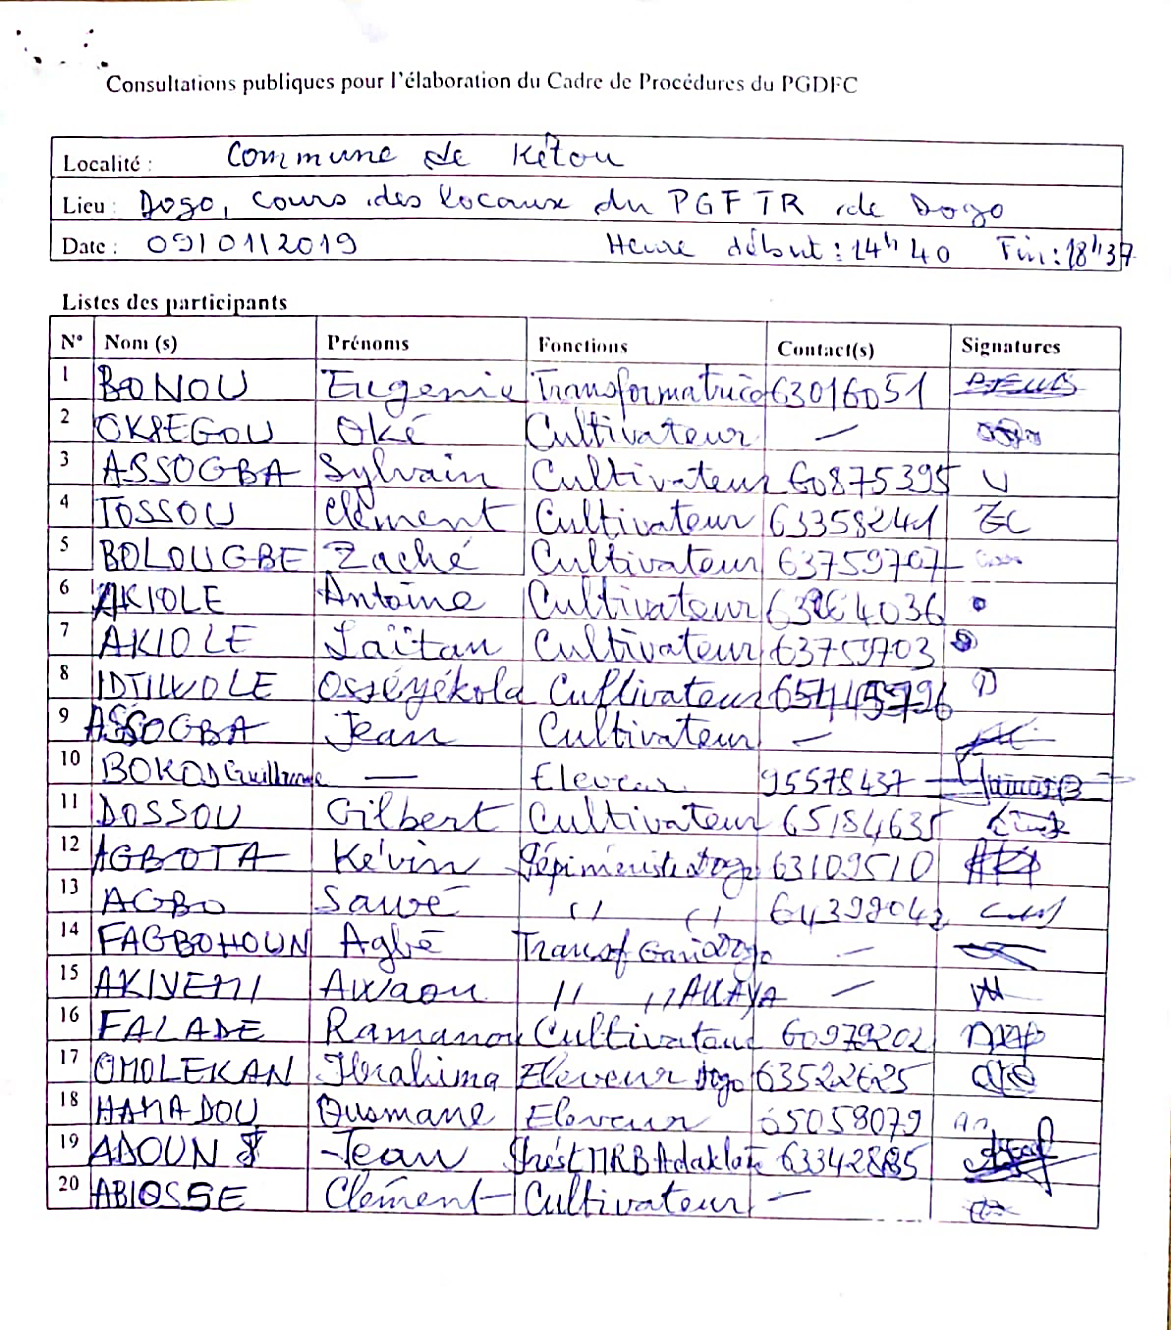 Consultations publiques pour l'élaboration du Cadre de Procédures du PGDFC
Localité : Commune de Kétou
Lieu : Dogo, cours des locaux du PGFTR de Dogo
Date : 09/01/2019 Heure début : 14h 40 Fin : 18h37
Listes des participants
N° Nom (s) Prénoms Fonctions Contact(s) Signatures
1 BONOU Eugenie Transformatrice 63016051
2 Oké Cultivateur —
3 ASSOGBA Sylvain Cultivateur 60875395
4 TOSSOU Clément Cultivateur 63358241
5 BOLOUGBE Zaché Cultivateur 63759707
6 AKIOLE Antoine Cultivateur
7 AKIOLE Laïtan Cultivateur 63759703
8 Osséyékola Cultivateur
9 ASSOGBA Jean Cultivateur —
10 BOKO Guillaume — Eleveur 95578437
11 DOSSOU Gilbert Cultivateur 65184635
12 AGBOTA Kévin Pépinieriste Dogo 63109510
13 AGBO Sauvé " "
14 FAGBOHOUN Agbé Transf Gari Dogo —
15 AKIYEMI Awaou " " AKAYA —
16 FALADE Ramanou Cultivateur 60979202
17 OMOLEKAN Ibrahima Eleveur Dogo 63522625
18 HAMADOU Ousmane Eleveur 65058079
19 ADOUN J Jean 63342885
20 ABIOSSE Clément Cultivateur —